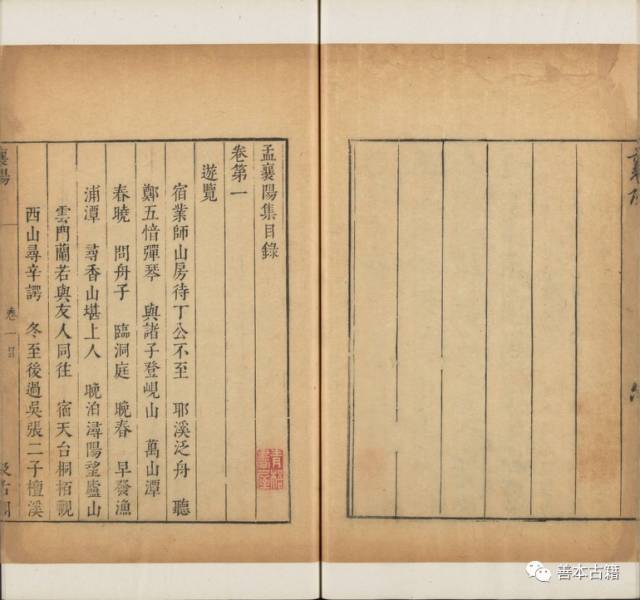 孟襄陽集目錄
卷第一
遊覽
宿業師山房待丁公不至　耶溪泛舟　聽
鄭五愔彈琴　與諸子登峴山　萬山潭
春曉　問舟子　臨洞庭　晚春　早發漁
浦潭　尋香山堪上人　晚泊潯陽望廬山
雲門蘭若與友人同往　宿天台桐栢觀
西山尋辛諤　冬至後過吳張二子檀溪
襄陽
卷一
善本古籍